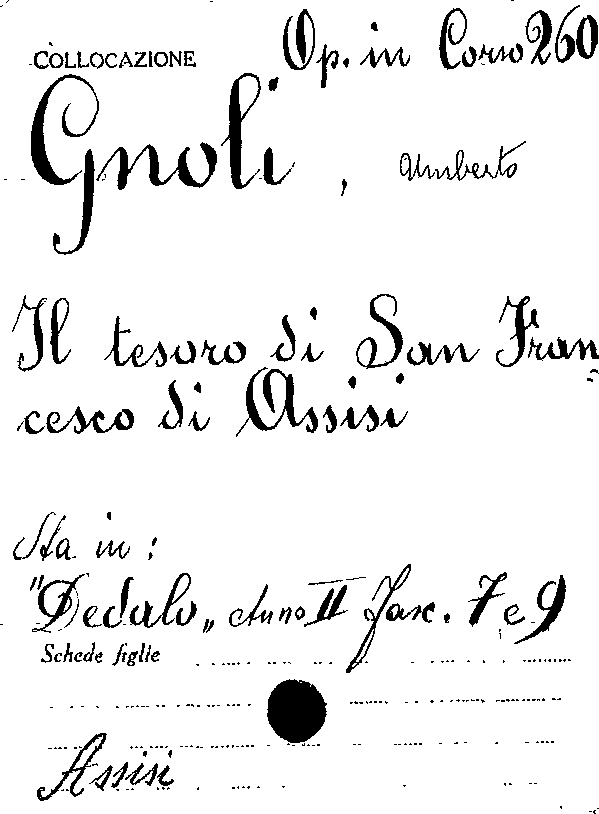 COLLOCAZIONE Op. in Corso 260
Gnoli, Umberto
Il tesoro di San Fran=
cesco di Assisi
Sta in:
"Dedalo„ Anno II Fasc. 7 e 9
Schede figlie
Assisi